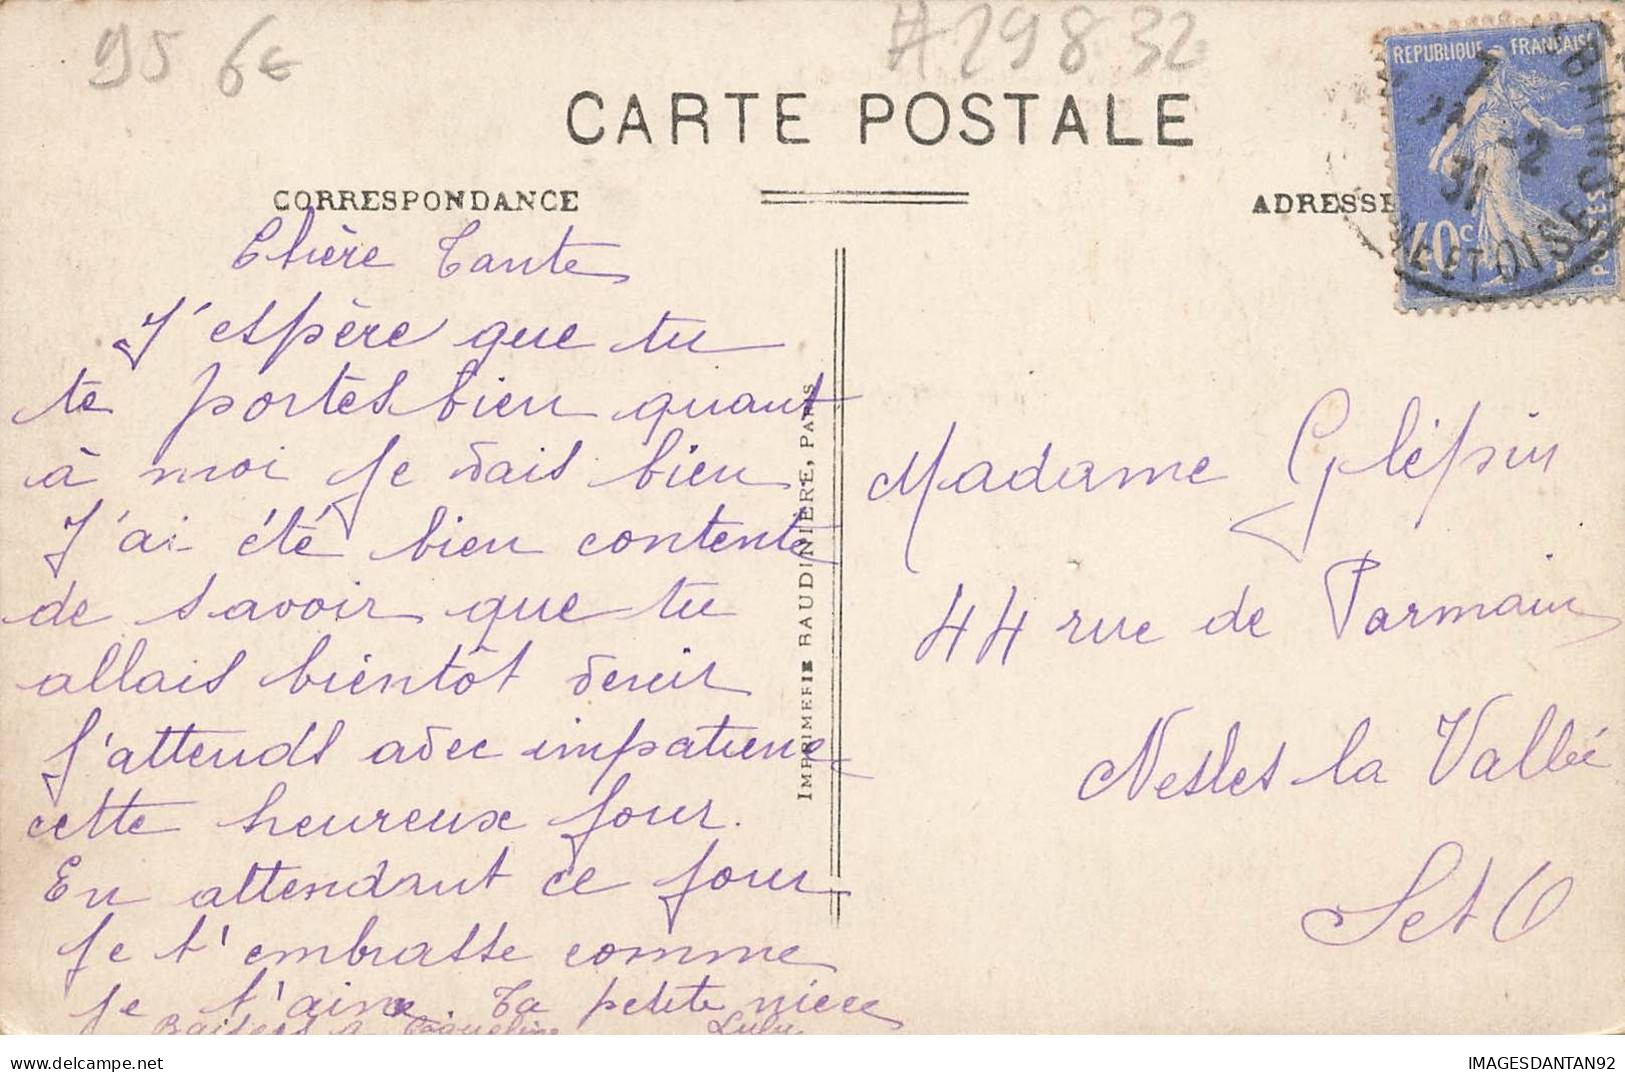 95 6€
#29832
CARTE POSTALE
REPUBLIQUE FRANÇAISE
POSTES
40c
7
-2
31
NE ET OISE
CORRESPONDANCE
ADRESSE
Chère Tante
J'espère que tu
te portes bien quant
à moi je vais bien
J'ai été bien contente
de savoir que tu
allais bientôt venir
J'attends avec impatience
cette heureux jour.
En attendant ce jour
je t'embrasse comme
je t'aime. Ta petite nièce
Baisers à Jaqueline Lulu
IMPRIMERIE BAUDINIÈRE, PARIS
Madame Glépin
44 rue de Parmain
Nesles la Vallée
S et O
IMAGESDANTAN92